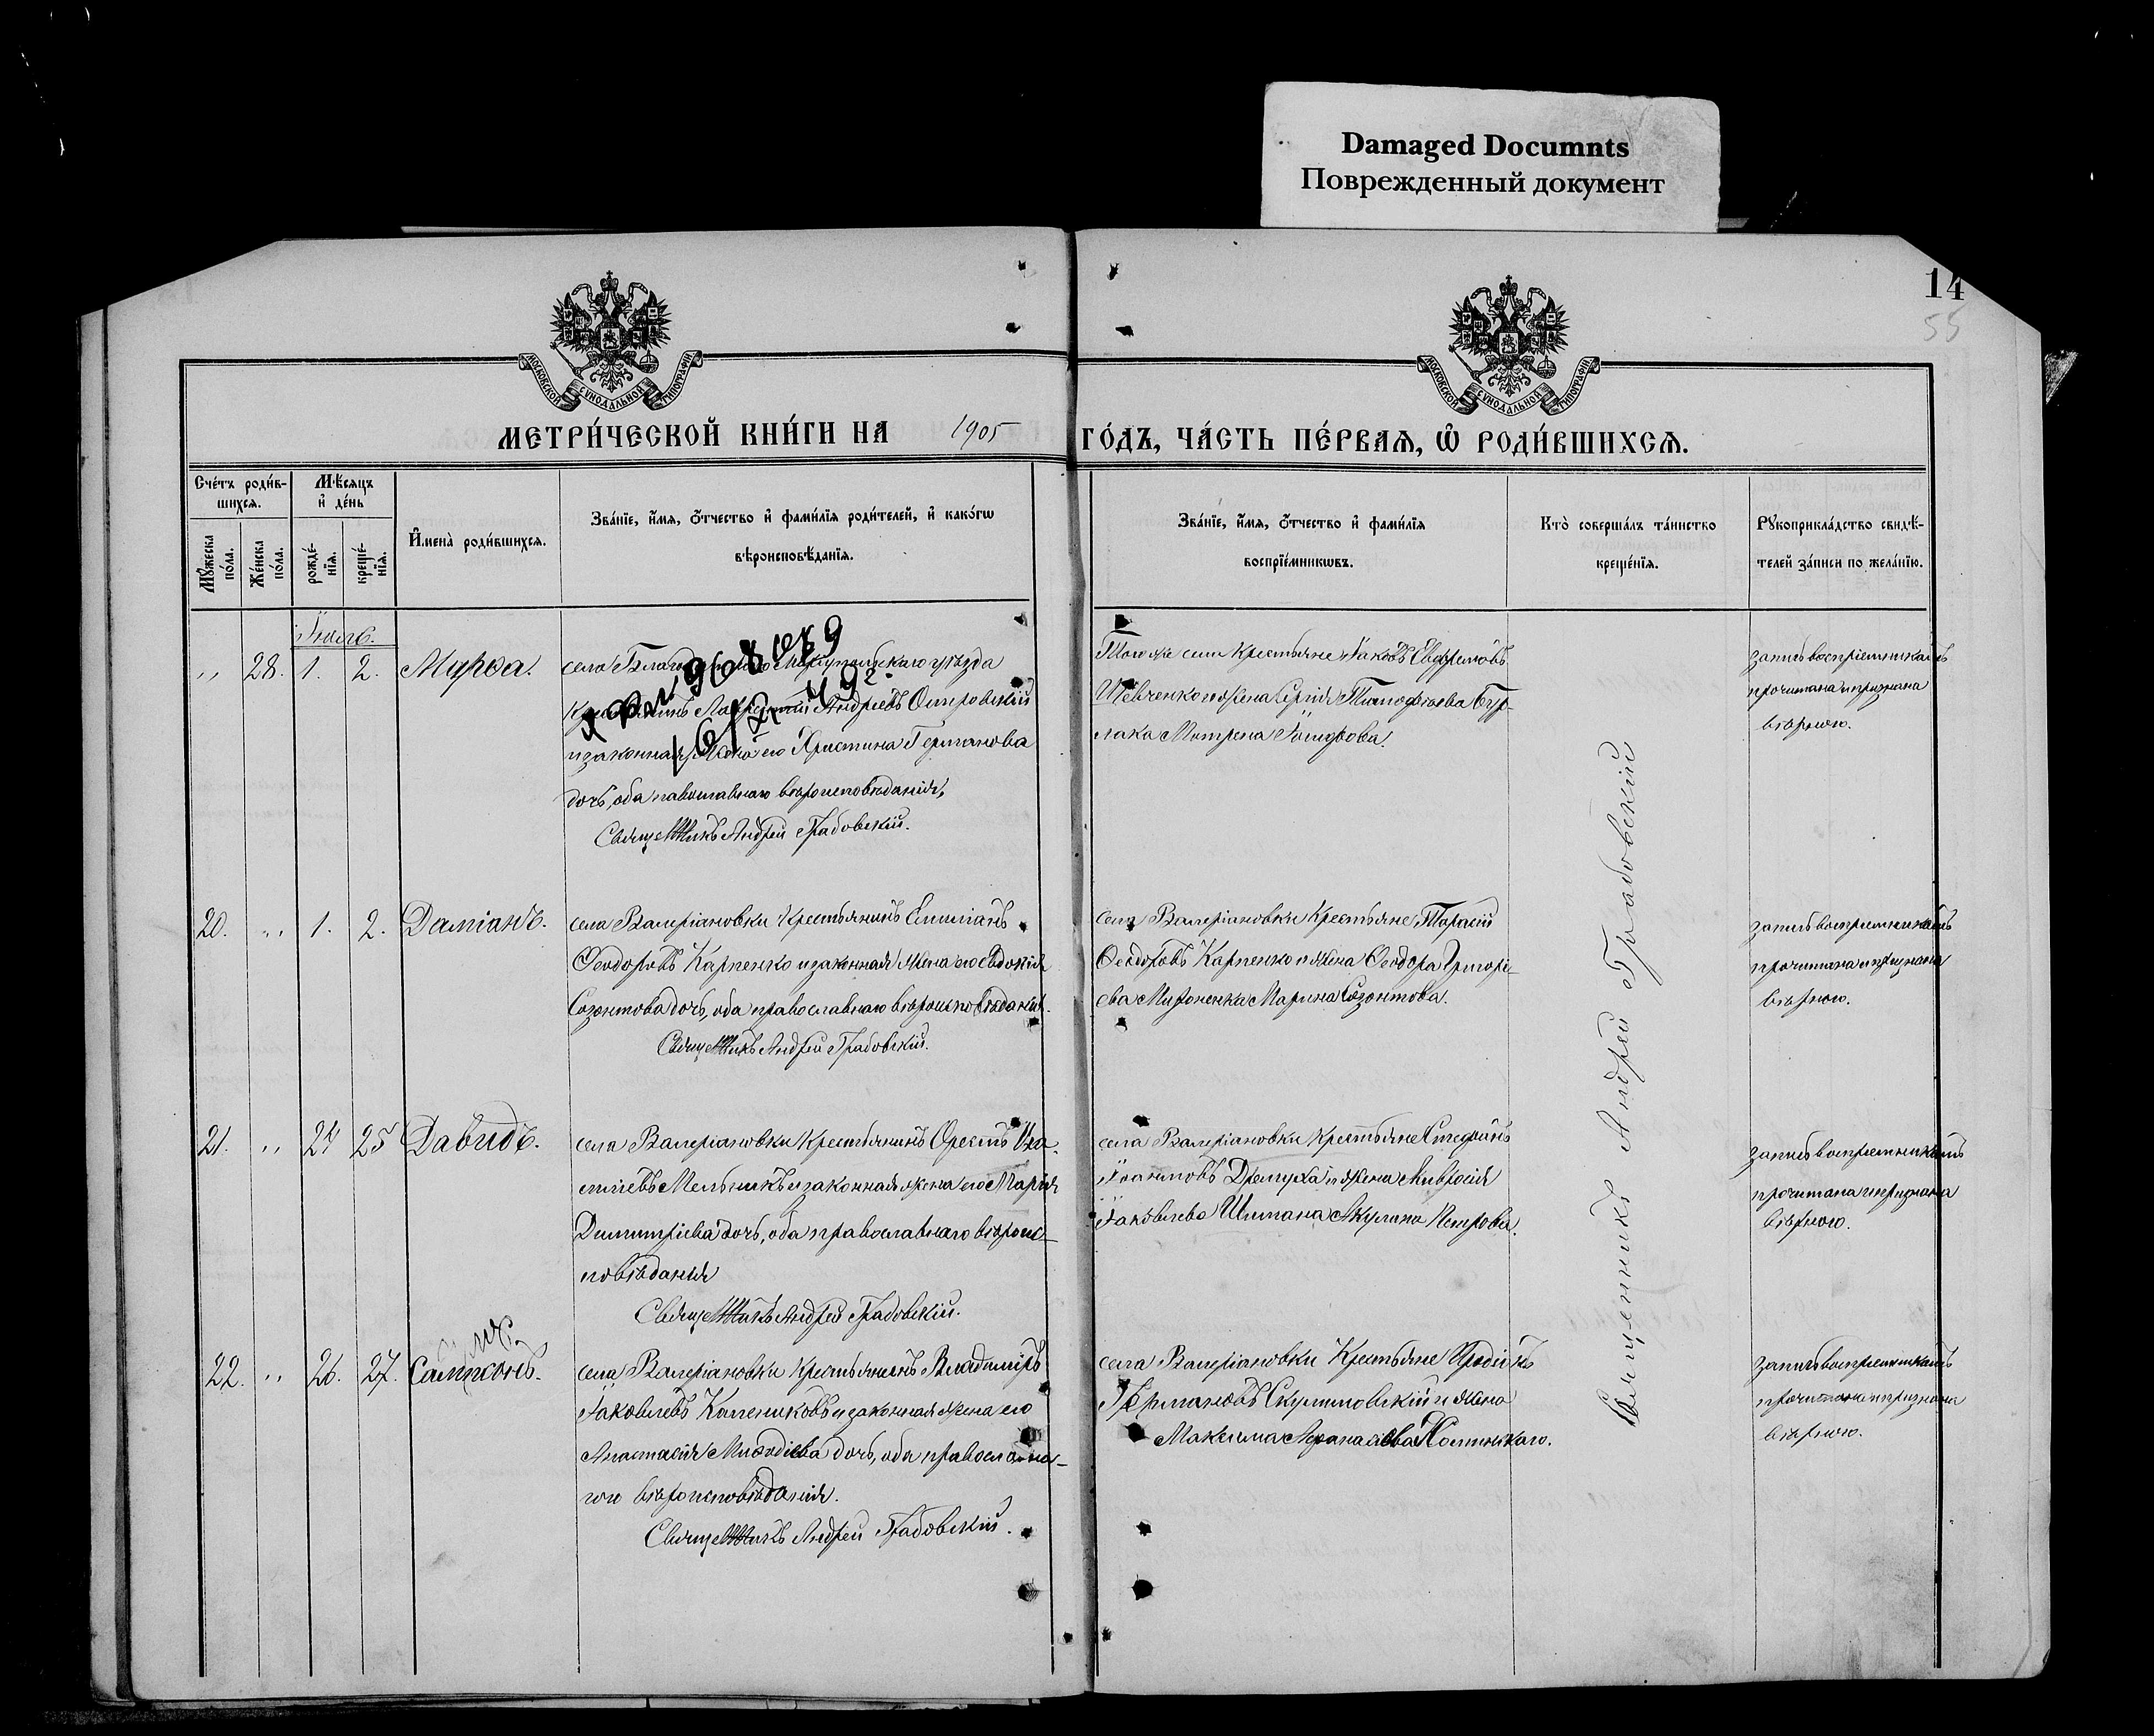 Damaged Documnts
Поврежденный документ
14
55
МОСКОВСКОЙ СѴНОДАЛЬНОЙ ТИПОГРАФІИ
МОСКОВСКОЙ СѴНОДАЛЬНОЙ ТИПОГРАФІИ
МЕТРИ́ЧЕСКОЙ КНИ́ГИ НА 1905 ГО́ДЪ, ЧА́СТЬ ПЕ́РВАѦ, Ѡ РОДИ́ВШИХСѦ.
Сче́тъ роди́в-
шихсѧ.
Мѣсѧцъ
и де́нь
Мꙋжеска по́ла.
Же́нска по́ла.
рожде́-
нїѧ.
креще́-
нїѧ.
И҆мена̀ роди́вшихсѧ.
Зва́нїе, и҆мѧ, ѻ҆тчество и҆ фами́лїѧ роди́телей, и҆ како́гѡ
вѣроисповѣ́данїѧ.
Зва́нїе, и҆мѧ, ѻ҆тчество и҆ фами́лїѧ
воспрїе́мникѡвъ.
Кто̀ соверша́лъ та́инство
креще́нїѧ.
Рꙋкоприкла́дство свидѣ́-
телей за́писи по жела́нїю.
Іюль.
„ 28. 1. 2. Марѳа.
села Маріупольскаго уѣзда
Андреевъ Островскій
и законная жена его Христина Германова
дочь, оба православнаго вѣроисповѣданія,
Священникъ Андрей Грабовскій.
Того же села Крестьяне Іаковъ Евфремовъ
Шевченко и жена Сергія Тимофеева Бур-
лака Матрена
запись воспріемникамъ
прочитана и признана
вѣрною.
20. „ 1. 2. Даміанъ.
села Валеріановки крестьянинъ Емиліанъ
Феодоровъ Карпенко и законная жена его Евдокія
Созонтова дочь, оба православнаго вѣроисповѣданія.
Священникъ Андрей Грабовскій.
села Валеріановки крестьяне Тарасій
Феодоровъ Карпенко и жена Феодора Григорі-
ева Мироненка Марина Созонтова.
запись воспріемникамъ
прочитана и признана
вѣрною.
21. „ 24 25 Давидъ.
села Валеріановки крестьянинъ Орестъ
Мельникъ и законная жена его Марія
Димитріева дочь, оба православнаго вѣроис-
повѣданія
Священникъ Андрей Грабовскій.
села Валеріановки крестьяне Стефанъ
Іоанновъ Дремуха и жена Амвросія
Іаковлева Шимана Акулина Петрова.
запись воспріемникамъ
прочитана и признана
вѣрною.
22. „ 26. 27. Сампсонъ.
села Валеріановки крестьянинъ Владиміръ
Іаковлевъ Калениковъ и законная жена его
Анастасія Меѳодіева дочь, оба православна-
го вѣроисповѣданія.
Священникъ Андрей Грабовскій.
села Валеріановки Крестьяне Иродіонъ
Германовъ Скулиновскій и жена
Максима Аѳанасіева
запись воспріемникамъ
прочитана и признана
вѣрною.
Священникъ Андрей Грабовскій